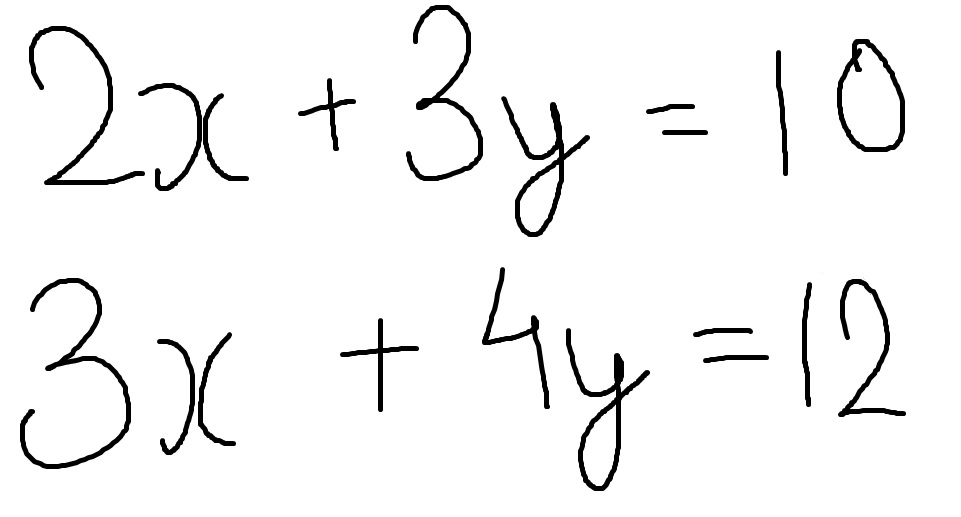 2x + 3y = 10
3x + 4y = 12